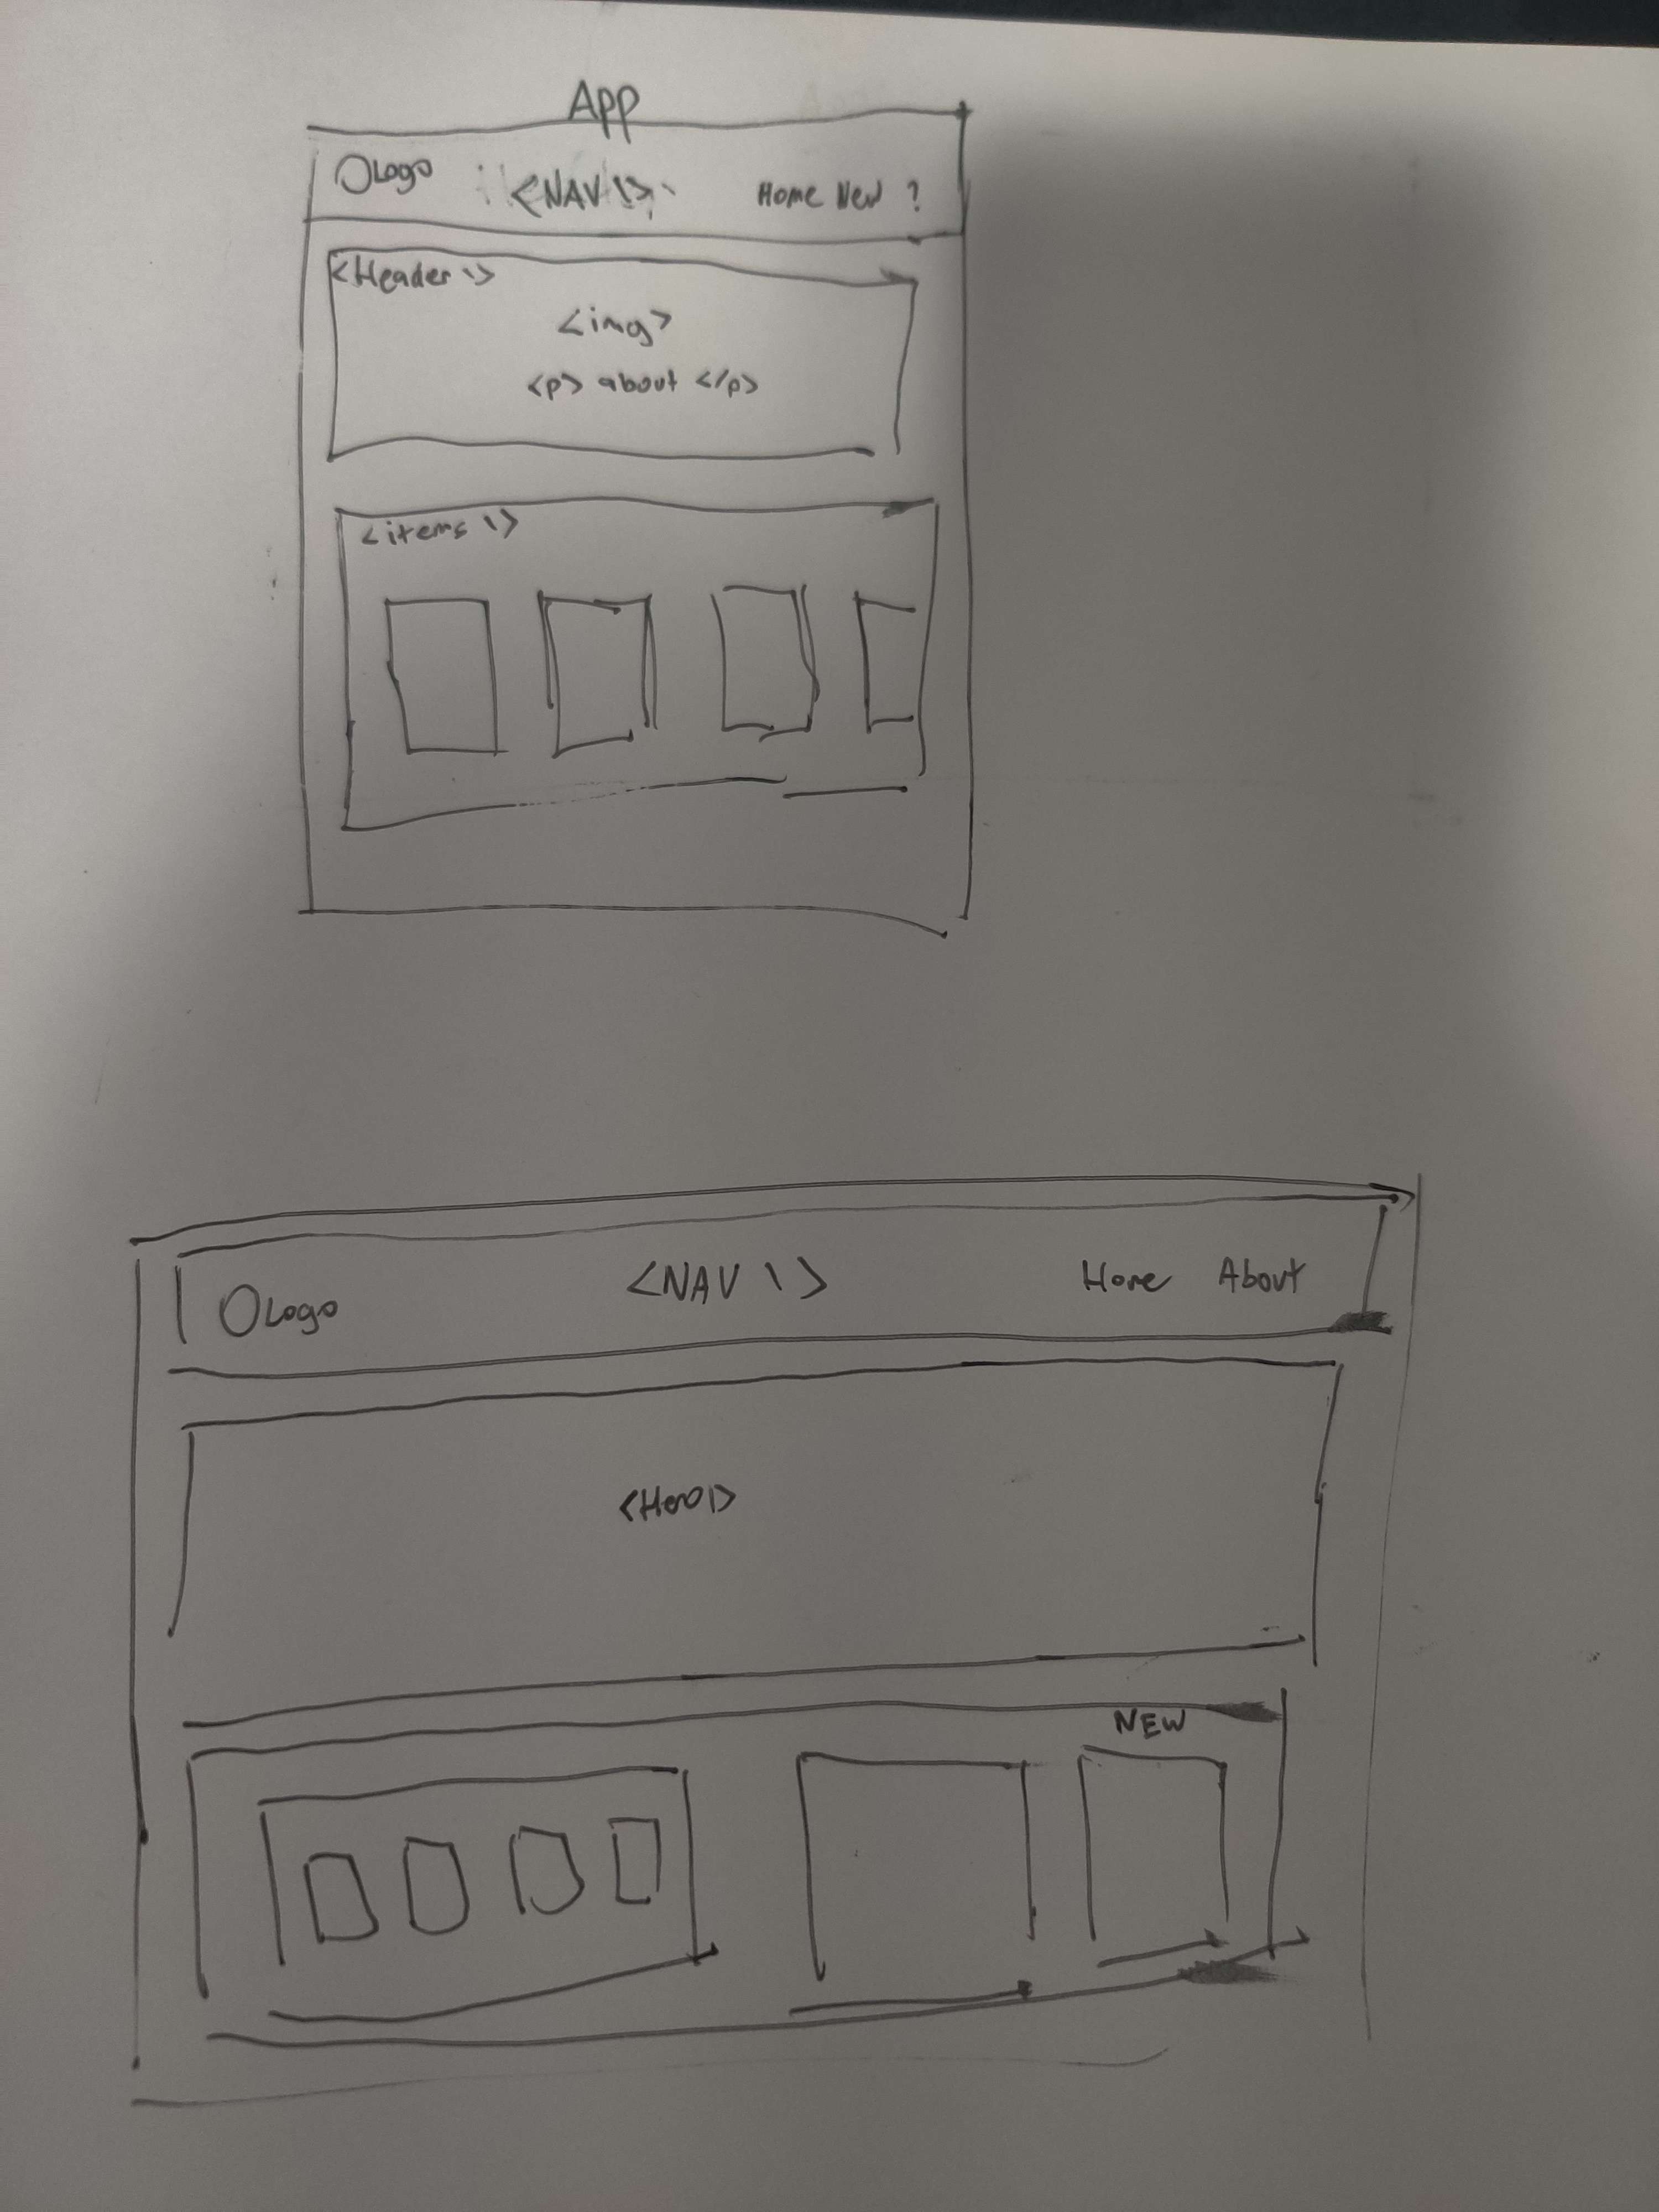 App
Logo <NAV \> Home New ?
<Header \>
<img>
<p> about </p>
<items \>
Logo <NAV \> Home About
<Hero\>
NEW